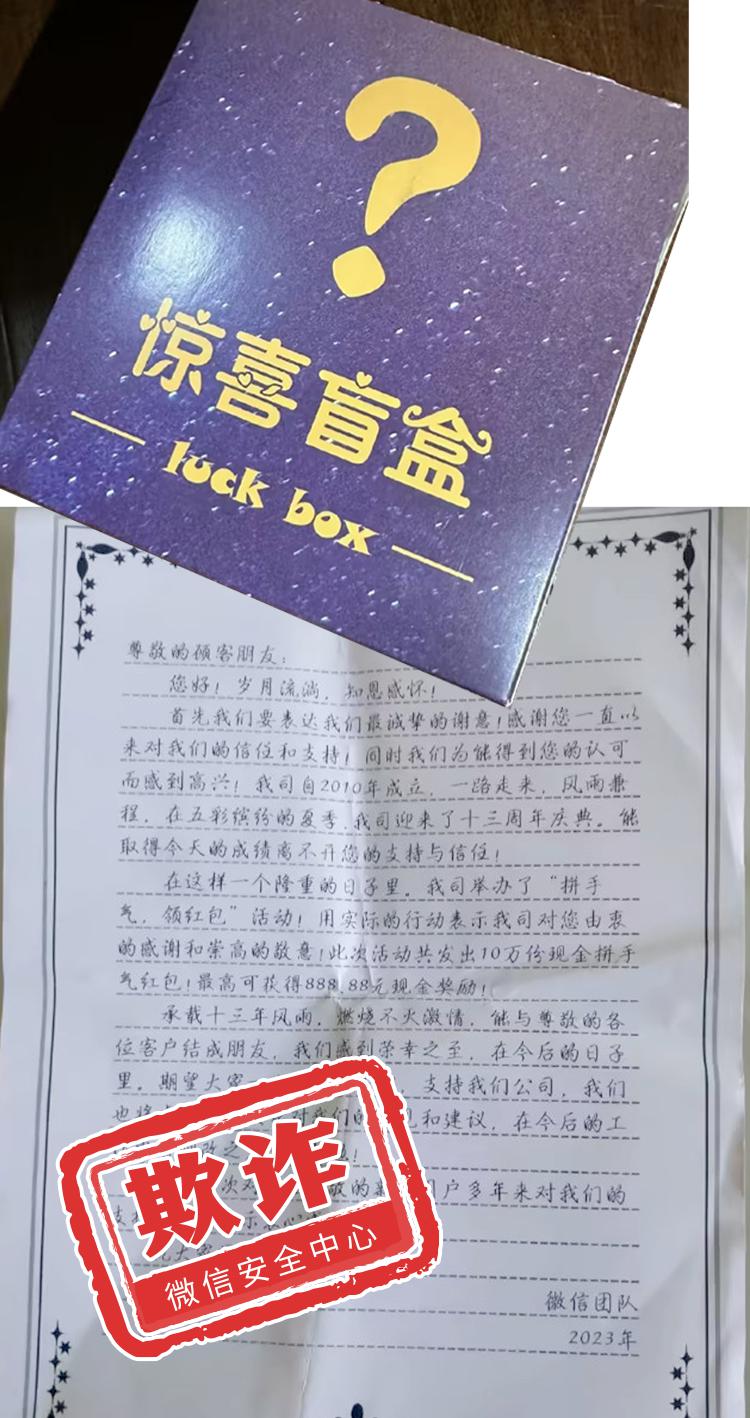 ?
惊喜盲盒
luck box
尊敬的顾客朋友：
您好！岁月流淌，知恩感怀！
首先我们要表达我们最诚挚的谢意！感谢您一直以
来对我们的信任和支持！同时我们为能得到您的认可
而感到高兴！我司自2010年成立，一路走来，风雨兼
程，在五彩缤纷的夏季，我司迎来了十三周年庆典。能
取得今天的成绩离不开您的支持与信任！
在这样一个隆重的日子里。我司举办了“拼手
气，领红包”活动！用实际的行动表示我司对您由衷
的感谢和崇高的敬意！此次活动共发出10万份现金拼手
气红包！最高可获得888.88元现金奖励！
承载十三年风雨，燃烧不火激情，能与尊敬的各
位客户结成朋友，我们感到荣幸之至，在今后的日子
里。期望大家 支持我们公司，我们
也将 对我们的 见和建议，在今后的工
改之
次对 敬的新 用户多年来对我们的
支持 示衷心
祝大家
欺诈
微信安全中心
微信团队
2023年